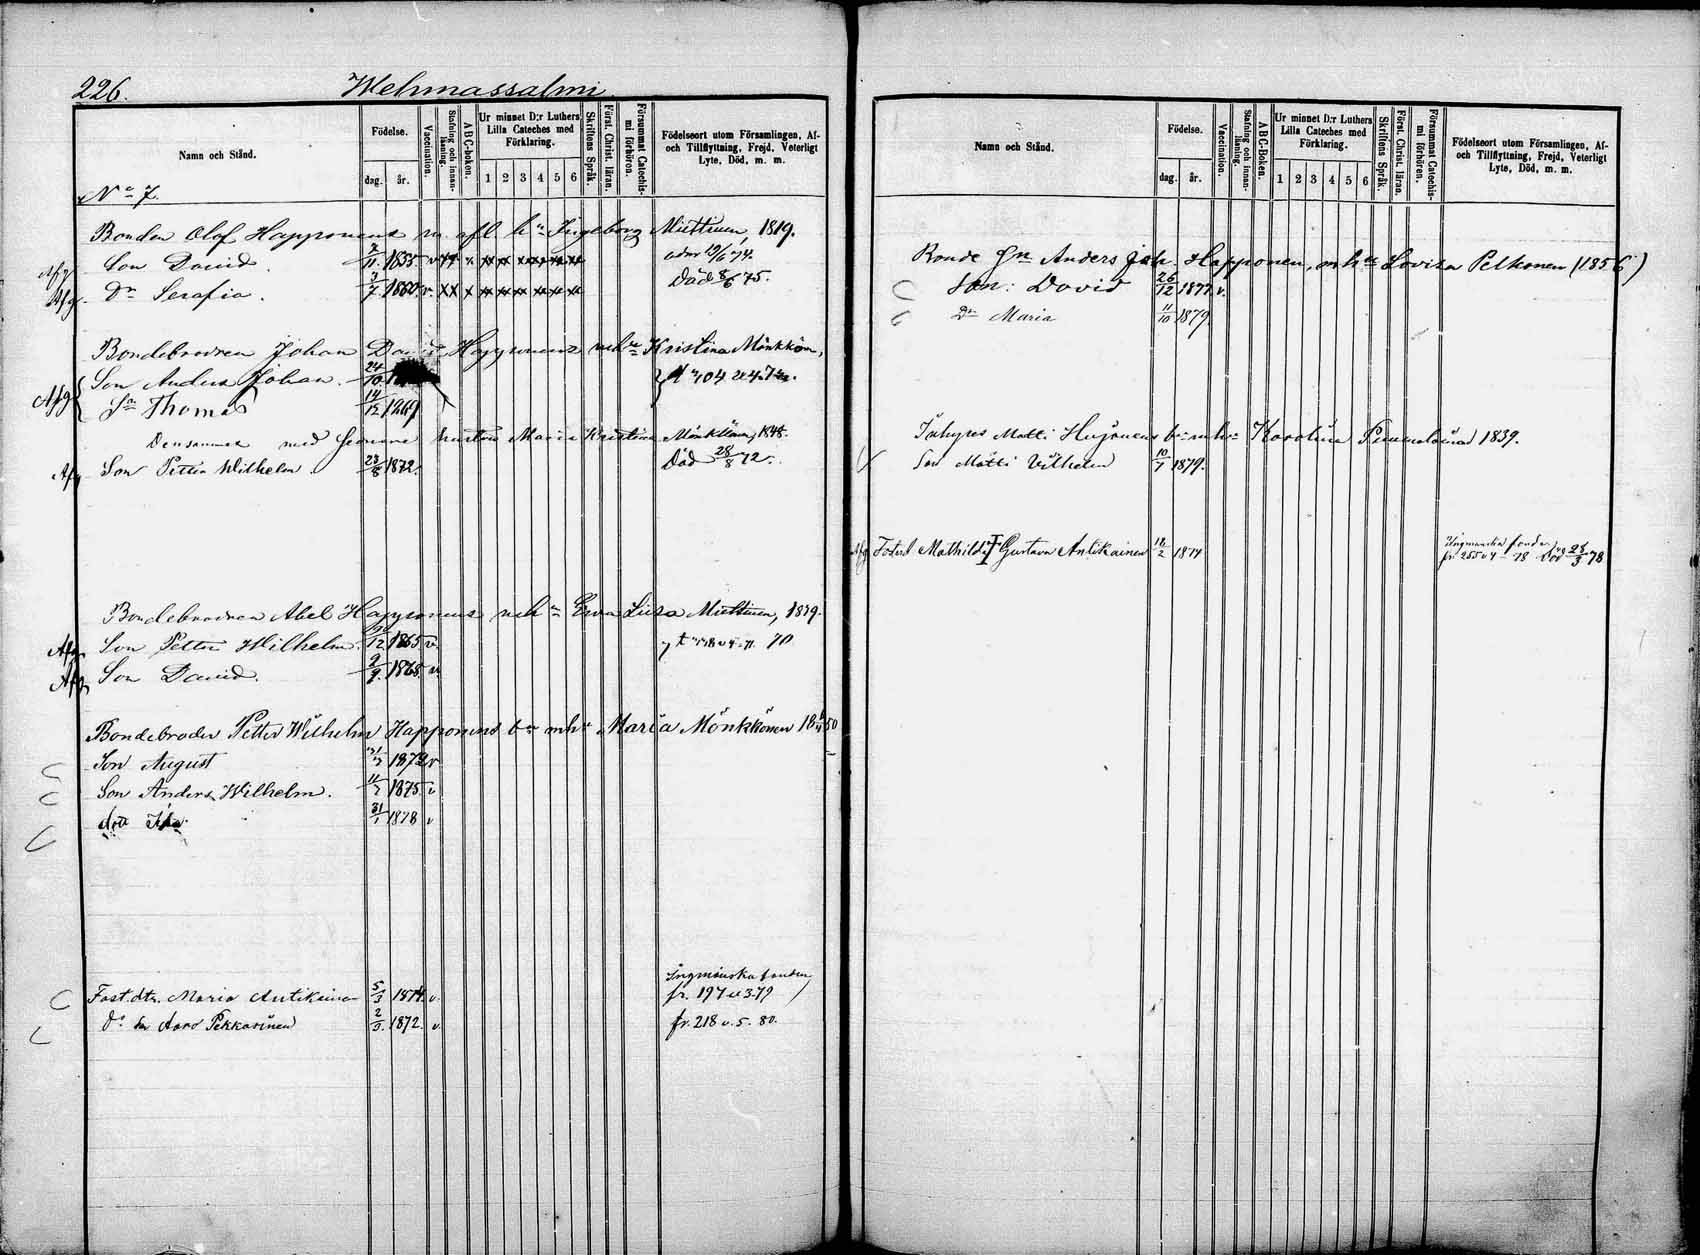 226. Wehmassalmi
Namn och Stånd.
Födelse.
dag. år.
Vaccination.
Stafning och innan-läsning.
A B C-boken.
Ur minnet D:r Luthers Lilla Cateches med Förklaring.
1 2 3 4 5 6
Skriftens Språk.
Först. Christ. läran.
Försummat Catechis-mi förhören.
Födelseort utom Församlingen, Af- och Tillflyttning, Frejd, Veterligt Lyte, Död, m. m.
No 7.
Bonden Olof Happonens m. afl. h:u Ingeborg Miettinen, 1819.
Afg Son David. 7/11 1855 v
Afg. Dr Serafia. 3/7 1860 v. Död 8/6 75.
Bondebrodren Johan David Happonens mhu Kristina Mönkkön,
Afg Son Anders Johan. 24/10
Sn Thomas 14/12 1869
Densammes med hustru Maria Kristina Mönkkönen, 1848.
Afg Son Petter Wilhelm 23/8 1872. Död 28/8 72.
Bondebrodren Abel Happonens mhu Ewa Liisa Miettinen, 1839.
Afg Son Petter Wilhelm. /12 1865 v.
Afg Son David. 9/9. 1868 v.
Bondebroder Petter Wilhelm Happonens bn mhu Maria Mönkkönen 18 50
Son August 21/7 1872 v
Son Anders Wilhelm. 11/7 1875 v
dott Ida 31/1 1878 v
Fost. dtr. Maria Antikainen 5/3 1874 v. Ingmanska fonden fr. 197 u 3. 79
do son Aaro Pekkarinen 2/3. 1872. v. fr. 218 v. 5. 80.
Namn och Stånd.
Födelse.
dag. år.
Vaccination.
Stafning och innan-läsning.
A B C-Boken.
Ur minnet D:r Luthers Lilla Cateches med Förklaring.
1 2 3 4 5 6
Skriftens Språk.
Först. Christ. läran.
Försummat Catechis-mi förhören.
Födelseort utom Församlingen, Af- och Tillflyttning, Frejd, Veterligt Lyte, Död, m. m.
Bonde Sn Anders Joh. Happonen, mhu Lovisa Pelkonen (1856)
Son: David 26/12 1877. v.
Dr Maria 11/10 1879.
Matti bn mhu Karolina 1839.
Son Matti Vilhelm 10/7 1879.
Afg Fosterd Mathilda Gustava Antikainen 18/2 1874 Ingmanska fonden fr 255 v 4 - 78 Död 28/3 78